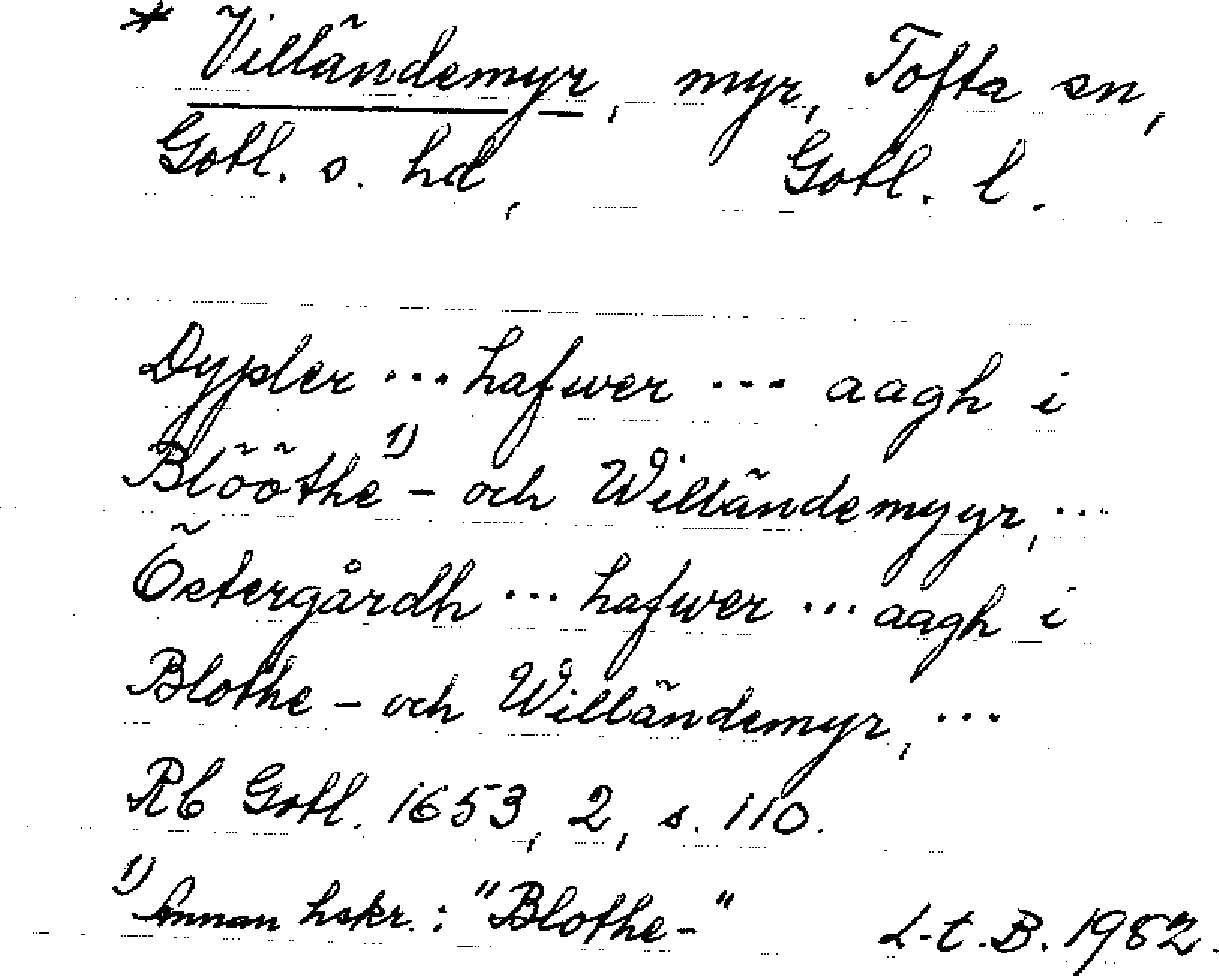 * Villändemyr, myr, Tofta sn,
Gotl. s. hd, Gotl. l.
Dypler ... hafwer ... aagh i
Blööthe¹⁾- och Willändemyyr, ...
Östergårdh ... hafwer ... aagh i
Blothe- och Willändemyr, ...
Rb Gotl. 1653, 2, s. 110.
¹⁾ Annan hskr.: "Blothe-" L.t.B. 1982.